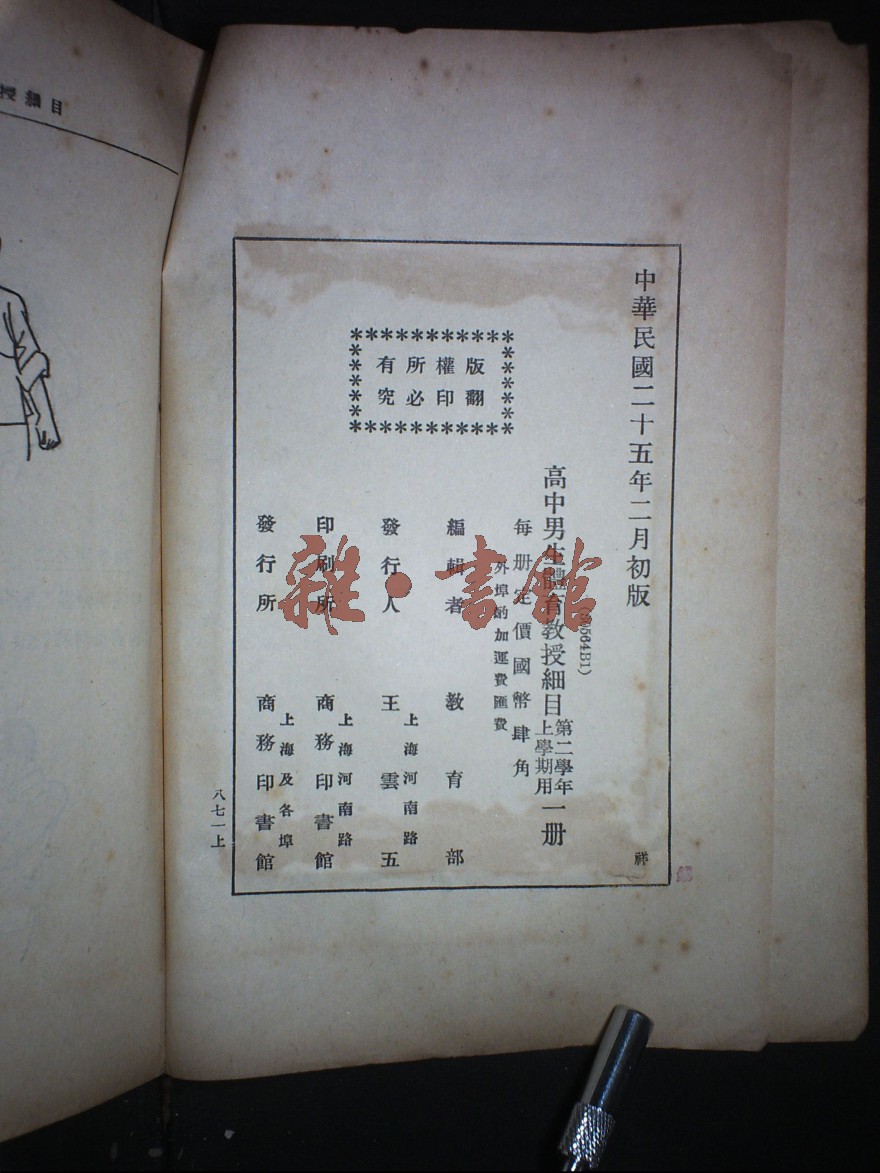 授細目
中華民國二十五年二月初版
(50564B1)
高中男生體育教授細目第二學年上學期用一册
每册定價國幣肆角
外埠酌加運費匯費
版權所有
翻印必究
編輯者 教育部
發行人 王雲五
上海河南路
印刷所 商務印書館
上海河南路
發行所 商務印書館
上海及各埠
八七一上
祥
雜·書館